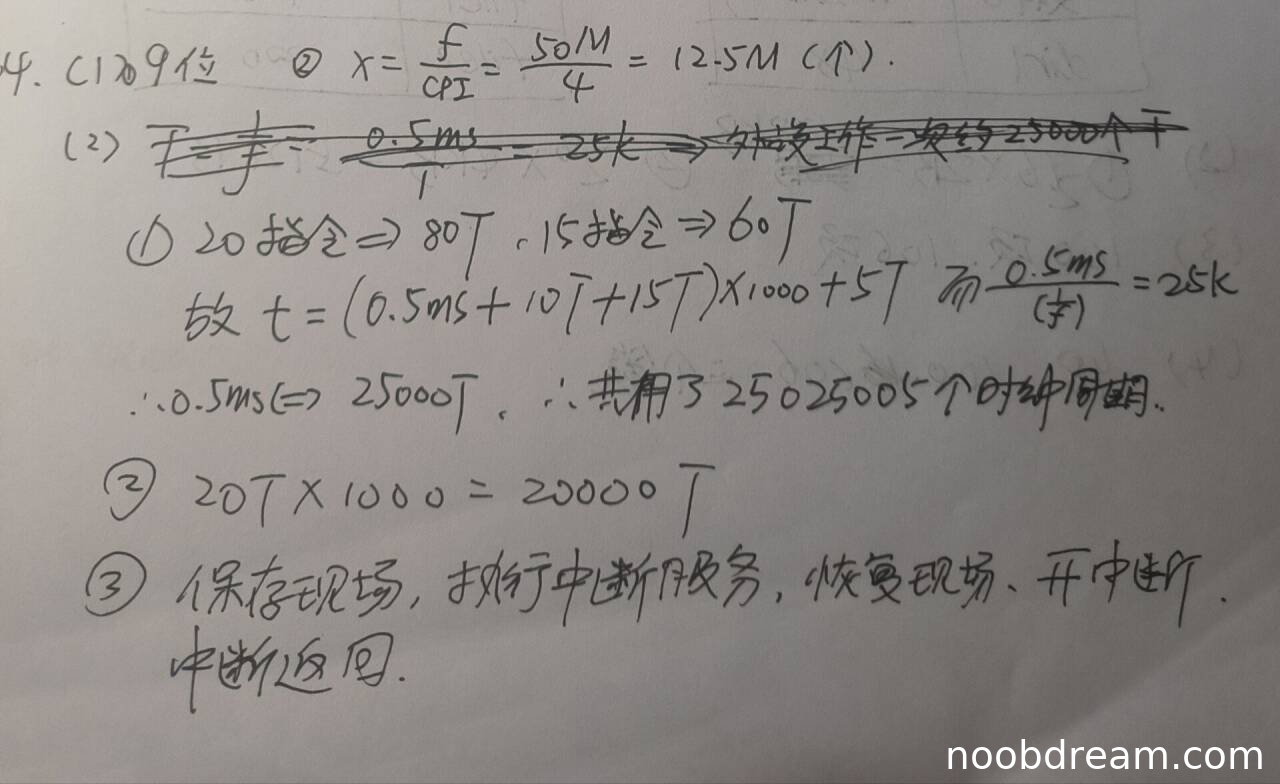 4. (1)① 9位 ② x = f/CPI = 50M/4 = 12.5M (个).
(2) T = 1/f = 0.5ms/1 = 25k ⇒ 外设工作一次约25000个T
① 20指令⇒80T, 15指令⇒60T
故 t = (0.5ms+10T+15T)×1000+5T 而 0.5ms/(1/f) = 25k
∴0.5ms⇔ 25000T, ∴共用了25025005个时钟周期.
② 20T×1000 = 20000T
③ 保存现场, 执行中断服务, 恢复现场、开中断,
中断返回.
noobdream.com